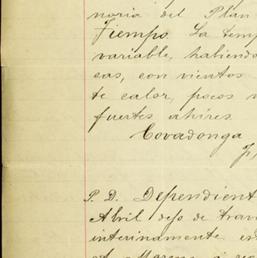 noria del Plan
Tiempo La temp
variable, habiendo
cas, con vientos
te calor, pocos
fuertes
Covadonga
P. D. Dependient
Abril dejo de trav
interinamente en